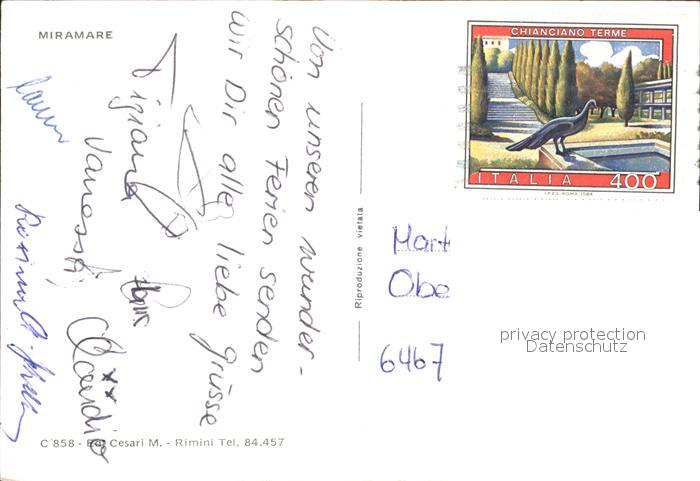 MIRAMARE
Von unseren wunder-
schönen Ferien senden
wir Dir alle liebe grüsse
Tiziana
Vanessa
Claudio
C 858 - Ed. Cesari M. - Rimini Tel. 84.457
Riproduzione vietata
CHIANCIANO TERME
ITALIA 400
I.P.Z.S.-ROMA-1984
Mart
Obe
6467
privacy protection
Datenschutz